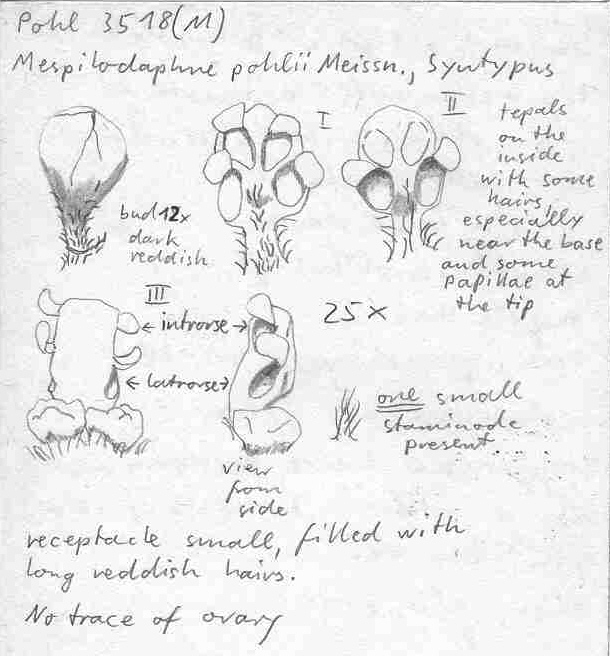 Pohl 3518 (M)
Mespilodaphne pohlii Meissn., Syntypus
I
II
tepals
on the
inside
with some
hairs,
especially
near the base
and some
papillae at
the tip
bud 12x
dark
reddish
III
← introrse →
25x
← latrorse →
one small
staminode
present
view
from
side
receptacle small, filled with
long reddish hairs.
No trace of ovary